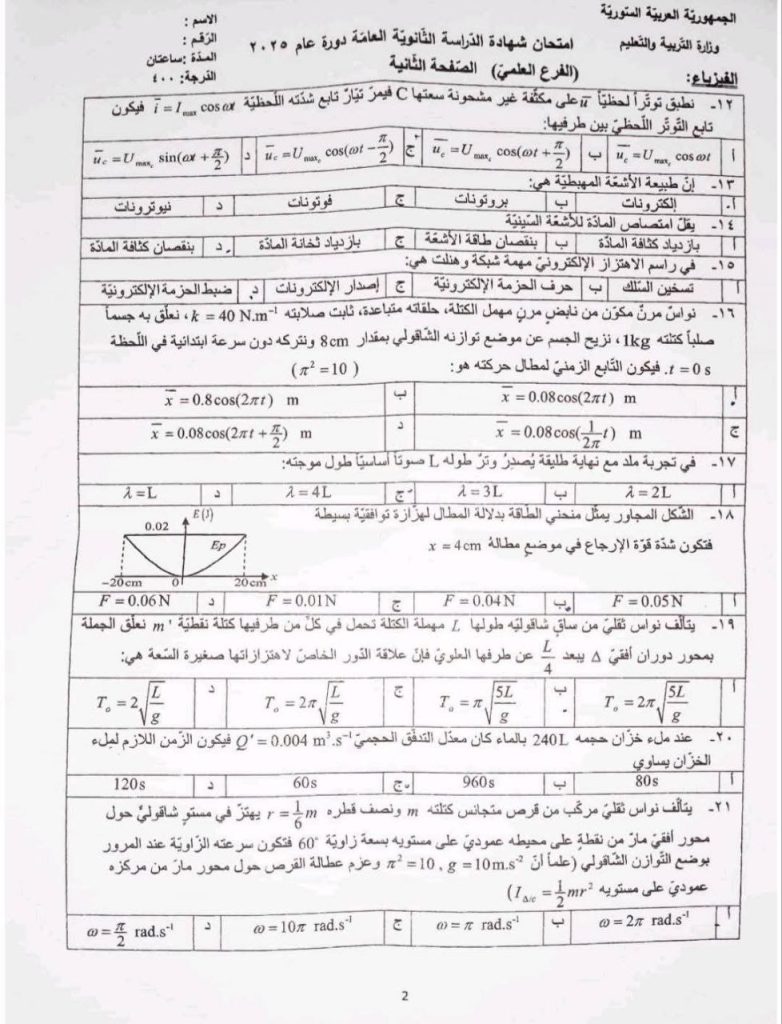 الجمهوريّة العربيّة السّوريّة
وزارة التّربية والتّعليم
الفيزياء:
امتحان شهادة الدّراسة الثّانويّة العامّة دورة عام ٢٠٢٥
(الفرع العلميّ) الصّفحة الثّانية
الاسم :
الرّقم :
المدّة :ساعتان
الدّرجة: ٤٠٠
١٢- نطبق توتّراً لحظيّاً u على مكثّفة غير مشحونة سعتها C فيمرّ تيّار تابع شدّته اللّحظيّة i = I max cos ωt فيكون
تابع التّوتّر اللّحظيّ بين طرفيها:
أ u c = U max c cos ωt ب u c = U max c cos(ωt + π/2) ج u c = U max c cos(ωt − π/2) د u c = U max c sin(ωt + π/2)
١٣- إنّ طبيعة الأشعّة المهبطيّة هي:
أ إلكترونات ب بروتونات ج فوتونات د نيوترونات
١٤- يقلّ امتصاص المادّة للأشعّة السّينيّة
أ بازدياد كثافة المادّة ب بنقصان طاقة الأشعّة ج بازدياد ثخانة المادّة د بنقصان كثافة المادّة
١٥- في راسم الاهتزاز الإلكترونيّ مهمة شبكة وهنلت هي:
أ تسخين السّلك ب حرف الحزمة الإلكترونيّة ج إصدار الإلكترونات د ضبط الحزمة الإلكترونيّة
١٦- نواس مرنٌ مكوّن من نابضٍ مرنٍ مهمل الكتلة، حلقاته متباعدة، ثابت صلابته k = 40 N.m⁻¹ ، نعلّق به جسماً
صلباً كتلته 1kg، نزيح الجسم عن موضع توازنه الشّاقوليّ بمقدار 8cm ونتركه دون سرعة ابتدائية في اللّحظة
t = 0 s. فيكون التّابع الزمنيّ لمطال حركته هو: (π² = 10 )
أ x = 0.08cos(2πt) m ب x = 0.8cos(2πt) m
ج x = 0.08cos(1/2π t) m د x = 0.08cos(2πt + π/2) m
١٧- في تجربة ملد مع نهاية طليقة يُصدِرُ وترٌ طوله L صوتاً أساسيّاً طول موجته:
أ λ = 2L ب λ = 3L ج λ = 4L د λ = L
١٨- الشّكل المجاور يمثّل منحني الطّاقة بدلالة المطال لهزّازة توافقيّة بسيطة
فتكون شدّة قوّة الإرجاع في موضعٍ مطاله x = 4cm
E(J)
0.02
Ep
−20cm 0 20cm x
أ F = 0.05N ب F = 0.04N ج F = 0.01N د F = 0.06N
١٩- يتألّف نواس ثقليّ من ساقٍ شاقوليّه طولها L مهملة الكتلة تحمل في كلّ من طرفيها كتلة نقطيّة m' نعلّق الجملة
بمحور دوران أفقيّ Δ يبعد L/4 عن طرفها العلويّ فإنّ علاقة الدّور الخاصّ لاهتزازاتها صغيرة السّعة هي:
أ T o = 2π√(5L/g) ب T o = π√(5L/g) ج T o = 2π√(L/g) د T o = 2√(L/g)
٢٠- عند ملء خزّان حجمه 240L بالماء كان معدّل التدفّق الحجميّ Q' = 0.004 m³.s⁻¹ فيكون الزّمن اللازم لملء
الخزّان يساوي
أ 80s ب 960s ج 60s د 120s
٢١- يتألّف نواس ثقليّ مركّب من قرص متجانس كتلته m ونصف قطره r = 1/6 m يهتزّ في مستوٍ شاقوليٍّ حول
محور أفقيّ مارّ من نقطةٍ على محيطه عموديّ على مستويه بسعة زاويّة 60° فتكون سرعته الزّاويّة عند المرور
بوضع التّوازن الشّاقولي (علماً أنّ π² = 10 , g = 10m.s⁻² وعزم عطالة القرص حول محور مارّ من مركزه
عموديّ على مستويه I Δ/c = 1/2 mr²)
أ ω = 2π rad.s⁻¹ ب ω = π rad.s⁻¹ ج ω = 10π rad.s⁻¹ د ω = π/2 rad.s⁻¹
2